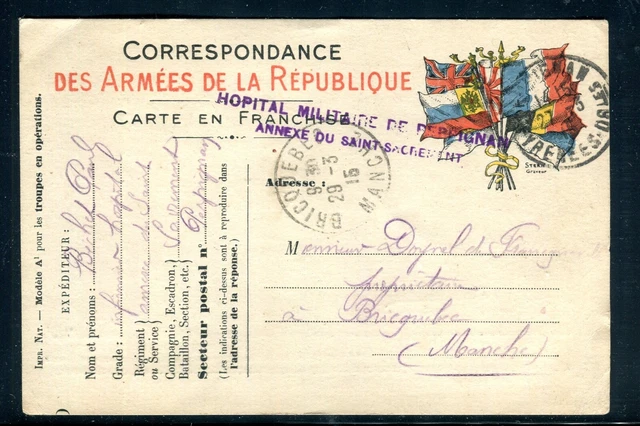 CORRESPONDANCE
DES ARMÉES DE LA RÉPUBLIQUE
CARTE EN FRANCHISE
HOPITAL MILITAIRE DE PERPIGNAN
ANNEXE DU SAINT-SACREMENT
BRICQUEBEC
9 30
29 - 3
15
MANCHE
STERN
Graveur
Adresse :
Monsieur
propriétaire
à Bricquebec
(Manche)
IMPR. NAT. — Modèle A¹ pour les troupes en opérations.
EXPÉDITEUR :
Nom et prénoms : Paul
Grade :
Régiment
ou Service
Compagnie, Escadron,
Bataillon, Section, etc.
Secteur postal n° Perpignan
(Les indications ci-dessus sont à reproduire dans
l'adresse de la réponse.)